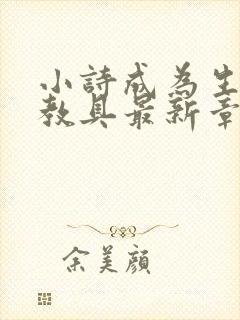 小詩成為生
教具最新章
余美顏